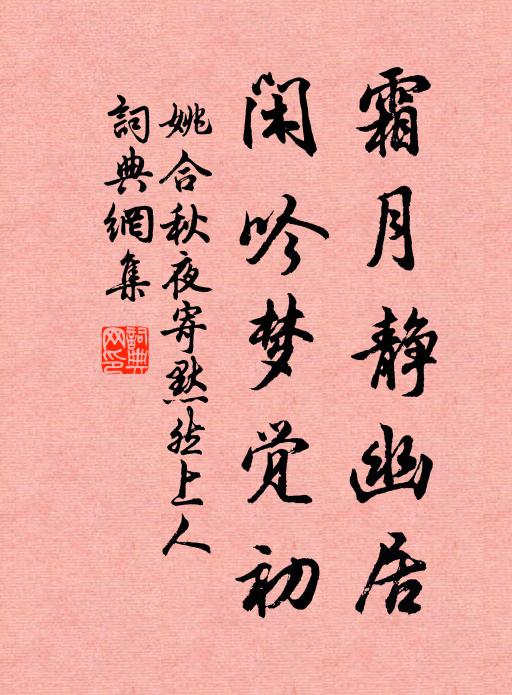 霜月静幽居
闲吟梦觉初
姚合秋夜寄默然上人
詞典網集
詞典网印